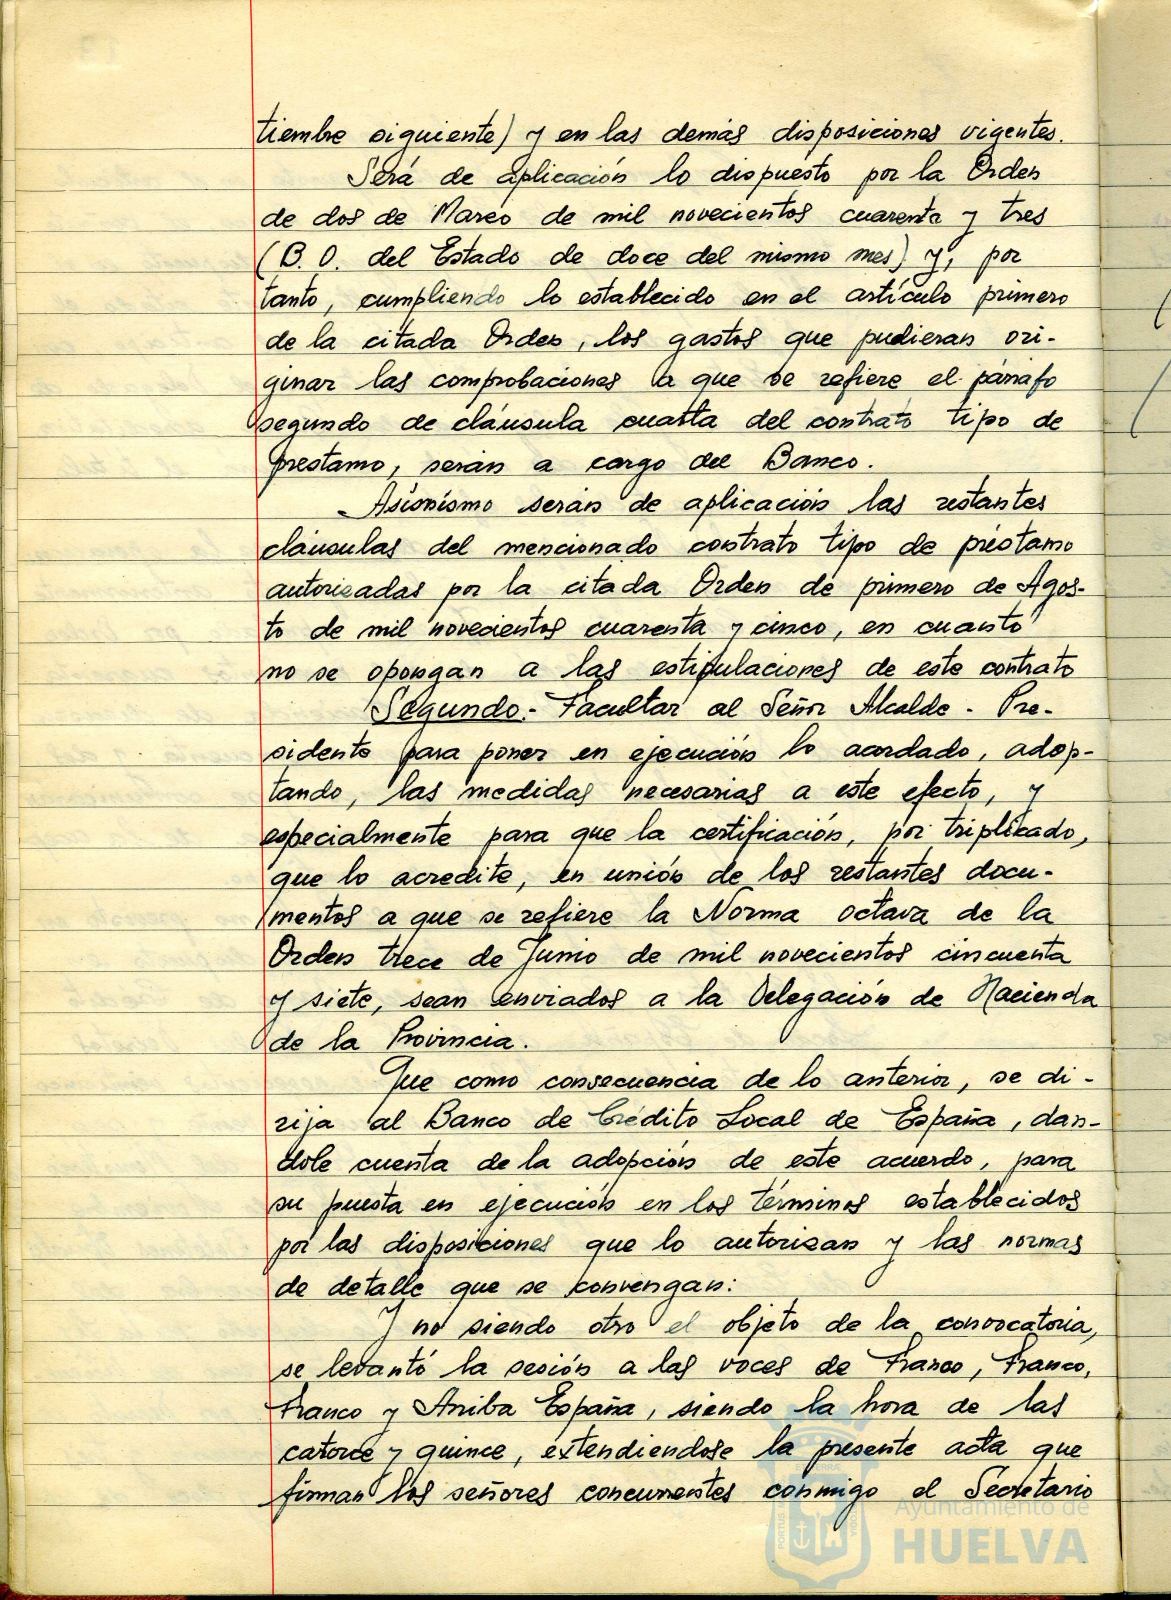 tiembre siguiente) y en las demás disposiciones vigentes.
Será de aplicación lo dispuesto por la Orden
de dos de Marzo de mil novecientos cuarenta y tres
(B. O. del Estado de doce del mismo mes) y, por
tanto, cumpliendo lo establecido en el artículo primero
de la citada Orden, los gastos que pudieran ori-
ginar las comprobaciones a que se refiere el párrafo
segundo de cláusula cuarta del contrato tipo de
prestamo, serán a cargo del Banco.
Asimismo serán de aplicación las restantes
cláusulas del mencionado contrato tipo de préstamo
autorizadas por la citada Orden de primero de Agos-
to de mil novecientos cuarenta y cinco, en cuanto
no se opongan a las estipulaciones de este contrato
Segundo.- Facultar al Señor Alcalde - Pre-
sidente para poner en ejecución lo acordado, adop-
tando, las medidas necesarias a este efecto, y
especialmente para que la certificación, por triplicado,
que lo acredite, en unión de los restantes docu-
mentos a que se refiere la Norma octava de la
Orden trece de Junio de mil novecientos cincuenta
y siete, sean enviados a la Delegación de Hacienda
de la Provincia.
Que como consecuencia de lo anterior, se di-
rija al Banco de Crédito Local de España, dan-
dole cuenta de la adopción de este acuerdo, para
su puesta en ejecución en los términos establecidos
por las disposiciones que lo autorizan y las normas
de detalle que se convengan:
Y no siendo otro el objeto de la convocatoria,
se levantó la sesión a las voces de Franco, Franco,
Franco y Arriba España, siendo la hora de las
catorce y quince, extendiendose la presente acta que
firman los señores concurrentes conmigo el Secretario
Ayuntamiento de
HUELVA